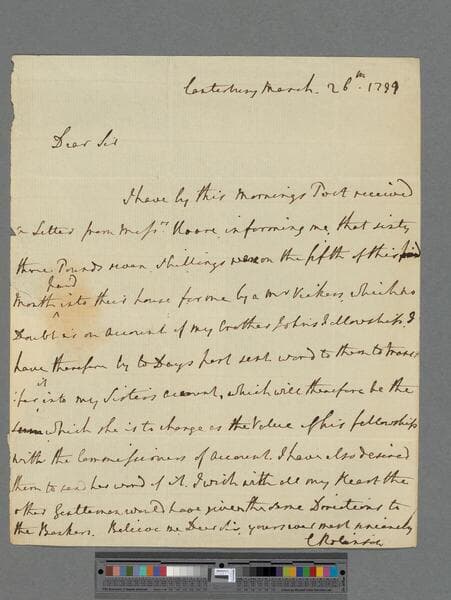 Canterbury March. 26th. 1799
Dear Sir
I have by this Mornings Post received
a Letter from Messrs Hoare informing me, that sixty
three Pounds seven Shillings were on the fifth of this paid
paid
Month into their house for me by a Mr Vickers, which no
Doubt is on account of my Brother John's Fellowship. I
have therefore by to Days post sent word to them to trans-
it
:fer into my Sisters account, which will therefore be the
sum which she is to charge as the Value of his fellowship
with the Commissioners of account. I have also desired
them to send her word of it. I wish with all my Heart the
other Gentleman would have given the same Directions to
the Bankers. Believe me Dear Sir, yours ever most sincerely
C Robinson